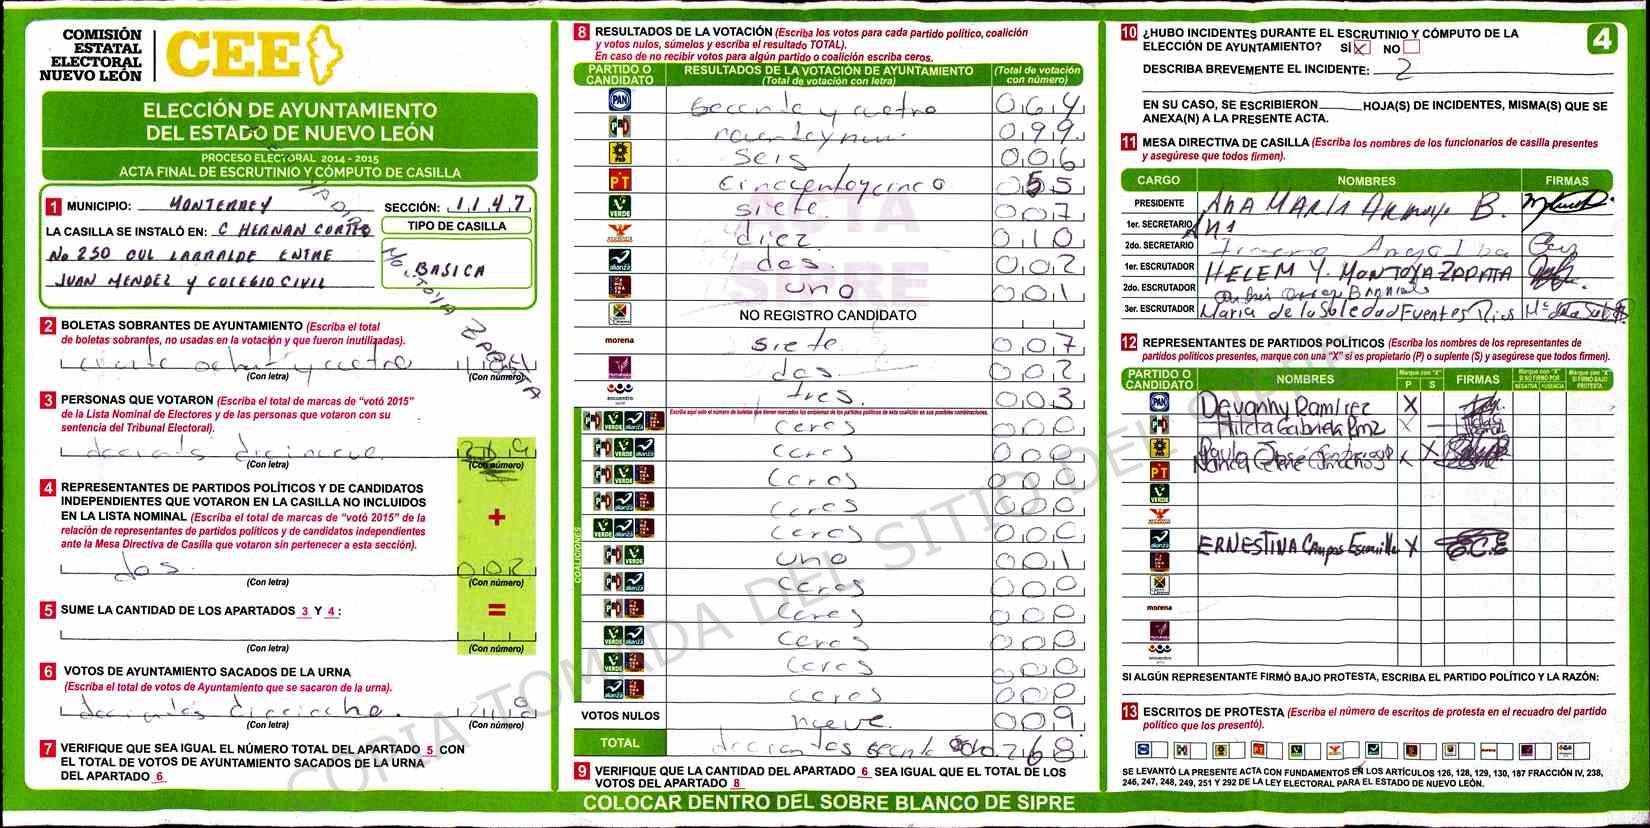 COMISIÓN
ESTATAL
ELECTORAL
NUEVO LEÓN
CEE
ELECCIÓN DE AYUNTAMIENTO
DEL ESTADO DE NUEVO LEÓN
PROCESO ELECTORAL 2014 - 2015
ACTA FINAL DE ESCRUTINIO Y CÓMPUTO DE CASILLA
1 MUNICIPIO: MONTERREY SECCIÓN: 1147
LA CASILLA SE INSTALÓ EN: C HERNAN CORTES
TIPO DE CASILLA
No 250 COL LARRALDE ENTRE
BASICA
JUAN MENDEZ Y COLEGIO CIVIL
2 BOLETAS SOBRANTES DE AYUNTAMIENTO (Escriba el total
de boletas sobrantes, no usadas en la votación y que fueron inutilizadas).
ciento ochenta y cuatro 184
(Con letra) (Con número)
3 PERSONAS QUE VOTARON (Escriba el total de marcas de “votó 2015”
de la Lista Nominal de Electores y de las personas que votaron con su
sentencia del Tribunal Electoral).
(Con letra) (Con número)
4 REPRESENTANTES DE PARTIDOS POLÍTICOS Y DE CANDIDATOS
INDEPENDIENTES QUE VOTARON EN LA CASILLA NO INCLUIDOS
EN LA LISTA NOMINAL (Escriba el total de marcas de “votó 2015” de la
relación de representantes de partidos políticos y de candidatos independientes
ante la Mesa Directiva de Casilla que votaron sin pertenecer a esta sección).
+
dos. 002
(Con letra) (Con número)
5 SUME LA CANTIDAD DE LOS APARTADOS 3 Y 4:
=
(Con letra) (Con número)
6 VOTOS DE AYUNTAMIENTO SACADOS DE LA URNA
(Escriba el total de votos de Ayuntamiento que se sacaron de la urna).
(Con letra) (Con número)
7 VERIFIQUE QUE SEA IGUAL EL NÚMERO TOTAL DEL APARTADO 5 CON
EL TOTAL DE VOTOS DE AYUNTAMIENTO SACADOS DE LA URNA
DEL APARTADO 6
8 RESULTADOS DE LA VOTACIÓN (Escriba los votos para cada partido político, coalición
y votos nulos, súmelos y escriba el resultado TOTAL).
En caso de no recibir votos para algún partido o coalición escriba ceros.
PARTIDO O CANDIDATO RESULTADOS DE LA VOTACIÓN DE AYUNTAMIENTO (Total de votación con letra) (Total de votación con número)
PAN 064
PRD 099
PRD seis 006
PT cincuentaycinco 055
VERDE siete 007
diez 010
alianza dos 002
uno 001
NO REGISTRO CANDIDATO
morena siete 007
dos 002
encuentro tres 003
COALICIONES
Escriba aquí solo el número de boletas que tienen marcados los emblemas de los partidos políticos de esta coalición en sus posibles combinaciones.
ceros 000
ceros 000
ceros 000
ceros 000
ceros 000
uno 001
ceros 000
ceros 000
ceros 000
ceros 000
ceros 000
VOTOS NULOS nueve 009
TOTAL 268
9 VERIFIQUE QUE LA CANTIDAD DEL APARTADO 6 SEA IGUAL QUE EL TOTAL DE LOS
VOTOS DEL APARTADO 8
COLOCAR DENTRO DEL SOBRE BLANCO DE SIPRE
ACTA
SIPRE
COPIA TOMADA DEL SITIO DEL SIPRE
4
10 ¿HUBO INCIDENTES DURANTE EL ESCRUTINIO Y CÓMPUTO DE LA
ELECCIÓN DE AYUNTAMIENTO? SÍ X NO
DESCRIBA BREVEMENTE EL INCIDENTE: 2
EN SU CASO, SE ESCRIBIERON ____ HOJA(S) DE INCIDENTES, MISMA(S) QUE SE
ANEXA(N) A LA PRESENTE ACTA.
11 MESA DIRECTIVA DE CASILLA (Escriba los nombres de los funcionarios de casilla presentes
y asegúrese que todos firmen).
CARGO NOMBRES FIRMAS
PRESIDENTE ANA MARIA Arroyo B.
1er. SECRETARIO
2do. SECRETARIO
1er. ESCRUTADOR HELEM Y. MONTOYA ZAPATA
2do. ESCRUTADOR
3er. ESCRUTADOR Maria de la Soledad Fuentes Rios
12 REPRESENTANTES DE PARTIDOS POLÍTICOS (Escriba los nombres de los representantes de
partidos políticos presentes, marque con una “X” si es propietario (P) o suplente (S) y asegúrese que todos firmen).
PARTIDO O CANDIDATO NOMBRES Marque con "X" P S FIRMAS Marque con "X" SI NO FIRMÓ POR NEGATIVA AUSENCIA Marque con "X" SI FIRMÓ BAJO PROTESTA
PAN Devanny Ramirez X
Hilda Gabriela Rmz X
PRD X
PT X
VERDE
alianza ERNESTINA Campos X
morena
encuentro
SI ALGÚN REPRESENTANTE FIRMÓ BAJO PROTESTA, ESCRIBA EL PARTIDO POLÍTICO Y LA RAZÓN:
13 ESCRITOS DE PROTESTA (Escriba el número de escritos de protesta en el recuadro del partido
político que los presentó).
SE LEVANTÓ LA PRESENTE ACTA CON FUNDAMENTOS EN LOS ARTÍCULOS 126, 128, 129, 130, 187 FRACCIÓN IV, 238,
246, 247, 248, 249, 251 Y 292 DE LA LEY ELECTORAL PARA EL ESTADO DE NUEVO LEÓN.